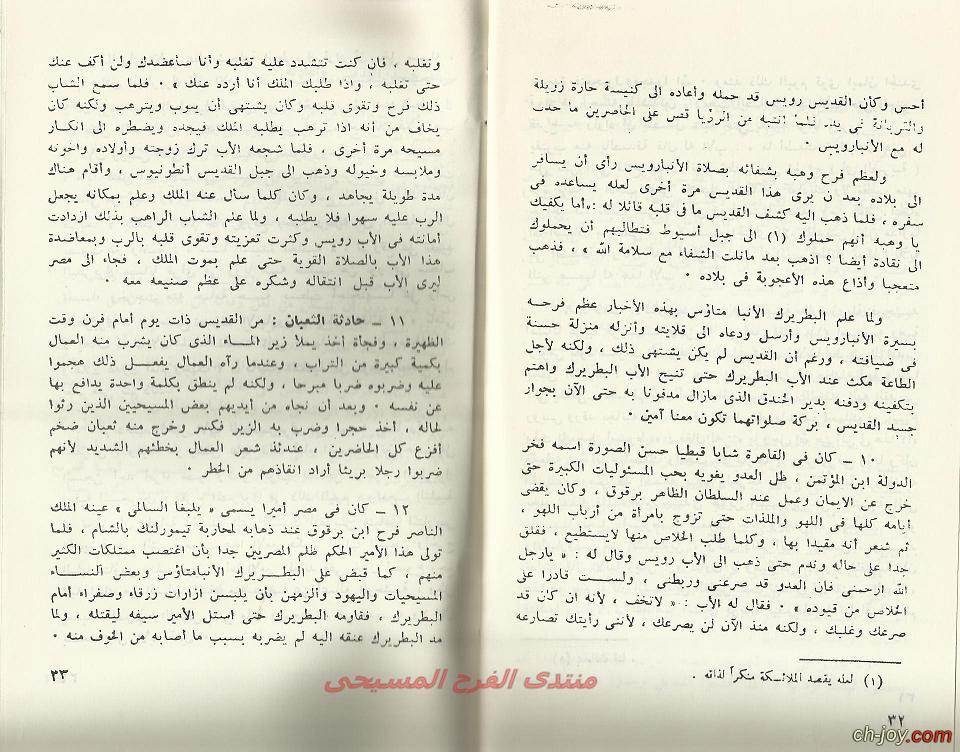 أحس وكان القديس رويس قد حمله وأعاده الى كنيسة حارة زويلة
والتريافة فى يد. فلما انتبه من الرؤيا قص على الحاضرين ما حدث
له مع الأنبارويس .
ولعظم فرح وهبه بشفائه بصلاة الأنبارويس رأى أن يسافر
الى بلاده بعد ن يرى هذا القديس مرة أخرى لعله يساعده فى
سفره ، فلما ذهب اليه كشف القديس ما فى قلبه قائلا له : «أما يكفيك
يا وهبه أنهم حملوك (١) الى جبل أسيوط فتطالبهم أن يحملوك
الى نقادة أيضا ؟ اذهب بعد مانلت الشفاء مع سلامة الله » ، فذهب
متعجبا وأذاع هذه الأعجوبة فى بلاده .
ولما علم البطريرك الأنبا متاؤس بهذه الأخبار عظم فرحه
بسيرة الأنبارويس وأرسل ودعاه الى قلايته وأنزله منزلة حسنة
فى ضيافته ، ورغم أن القديس لم يكن يشتهى ذلك ، ولكنه لأجل
الطاعة مكث عند الأب البطريرك حتى تنيح الأب البطريرك واهتم
بتكفينه ودفنه بدير الخندق الذى مازال مدفونا به حتى الآن بجوار
جسد القديس ، بركة صلواتهما تكون معنا آمين .
١٠ ــ كان فى القاهرة شابا قبطيا حسن الصورة اسمه فخر
الدولة ابن المؤتمن ، ظل العدو يغويه بحب المسئوليات الكبيرة حتى
خرج عن الايمان وعمل عند السلطان الظاهر برقوق ، وكان يقضى
أيامه كلها فى اللهو والملذات حتى تزوج بامرأة من أرباب اللهو ،
ثم شعر أنه مقيدا بها ، وكلما طلب الخلاص منها لايستطيع ، فقلق
جدا على حاله وندم حتى ذهب الى الأب رويس وقال له : « يارجل
الله ارحمنى فان العدو قد صرعنى وربطنى ، ولست قادرا على
الخلاص من قيوده » . فقال له الأب : « لاتخف ، لأنه ان كان قد
صرعك وغلبك ، ولكنه منذ الآن لن يصرعك ، لأننى رأيتك تصارعه
(١) لعله يقصد الملائكة منكراً لذاته .
٣٢
وتغلبه ، فان كنت تتشدد عليه تغلبه وأنا سأعضدك ولن أكف عنك
حتى تغلبه ، واذا طلبك الملك أنا أرده عنك » . فلما سمع الشاب
ذلك فرح وتقوى قلبه وكان يشتهى أن يتوب ويترهب ولكنه كان
يخاف من أنه اذا ترهب يطلبه الملك فيجده ويضطره الى انكار
مسيحه مرة أخرى ، فلما شجعه الأب ترك زوجته وأولاده واخوته
وملابسه وخيوله وذهب الى جبل القديس أنطونيوس ، وأقام هناك
مدة طويلة يجاهد ، وكان كلما سأل عنه الملك وعلم بمكانه يجعل
الرب عليه سهوا فلا يطلبه ، ولما علم الشاب الراهب بذلك ازدادت
أمانته فى الأب رويس وكثرت تعزيته وتقوى قلبه بالرب وبمعاضدة
هذا الأب بالصلاة القوية حتى علم بموت الملك ، فجاء الى مصر
ليرى الأب قبل انتقاله وشكره على عظم صنيعه معه .
١١ ــ حادثة الثعبان : مر القديس ذات يوم أمام فرن وقت
الظهيرة ، وفجأة أخذ يملأ زير المــاء الذى كان يشرب منه العمال
بكمية كبيرة من التراب ، وعندما رآه العمال يفعــل ذلك هجموا
عليه وضربوه ضربا مبرحا ، ولكنه لم ينطق بكلمة واحدة يدافع بها
عن نفسه . وبعد أن نجاه من أيديهم بعض المسيحيين الذين رثوا
لحاله ، أخذ حجرا وضرب به الزير فكسر وخرج منه ثعبان ضخم
أفزع كل الحاضرين ، عندئذ شعر العمال بخطئهم الشديد لأنهم
ضربوا رجلا بريئا أراد انقاذهم من الخطر .
١٢ ــ كان فى مصر أميرا يسمى « يلبغا السالمى » عينه الملك
الناصر فرح ابن برقوق عند ذهابه لمحاربة تيمورلنك بالشام ، فلما
تولى هذا الأمير الحكم ظلم المصريين جدا بأن اغتصب ممتلكات الكثير
منهم ، كما قبض على البطــريرك الأنبامتاؤس وبعض النســاء
المسيحيات واليهود وألزمهن بأن يلبسن ازارات زرقاء وصفراء أمام
البطريرك ، فقاومه البطريرك حتى استل الأمير سيفه ليقتله ، ولما
مد البطريرك عنقه اليه لم يضربه بسبب ما أصابه من الخوف منه .
٣٣
منتدى الفرح المسيحى
ch-joy.com